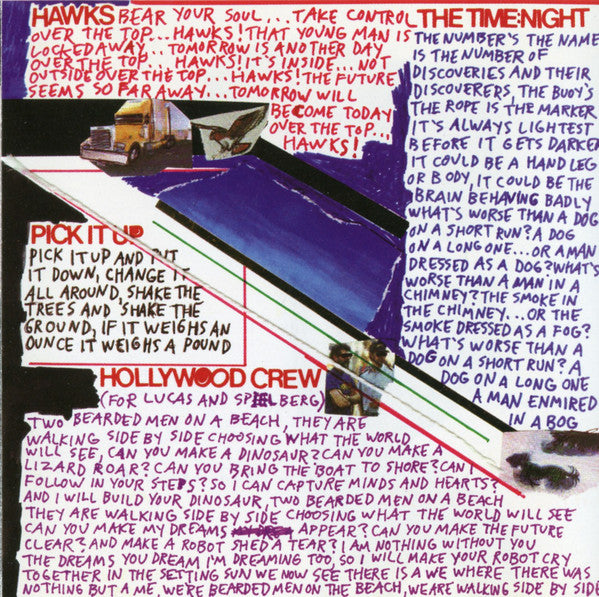 HAWKS BEAR YOUR SOUL...TAKE CONTROL
OVER THE TOP...HAWKS! THAT YOUNG MAN IS
LOCKED AWAY...TOMORROW IS ANOTHER DAY
OVER THE TOP... HAWKS! IT'S INSIDE...NOT
OUTSIDE OVER THE TOP...HAWKS! THE FUTURE
SEEMS SO FAR AWAY...TOMORROW WILL
BECOME TODAY
OVER THE TOP...
HAWKS!
THE TIME:NIGHT
THE NUMBER'S THE NAME
IS THE NUMBER OF
DISCOVERIES AND THEIR
DISCOVERERS, THE BUOY'S
THE ROPE IS THE MARKER
IT'S ALWAYS LIGHTEST
BEFORE IT GETS DARKER
IT COULD BE A HAND LEG
OR BODY, IT COULD BE THE
BRAIN BEHAVING BADLY
WHAT'S WORSE THAN A DOG
ON A SHORT RUN? A DOG
ON A LONG ONE...OR A MAN
DRESSED AS A DOG? WHAT'S
WORSE THAN A MAN IN A
CHIMNEY? THE SMOKE IN
THE CHIMNEY...OR THE
SMOKE DRESSED AS A FOG?
WHAT'S WORSE THAN A
DOG ON A SHORT RUN? A
DOG ON A LONG ONE
A MAN ENMIRED
IN A BOG
PICK IT UP
PICK IT UP AND PUT
IT DOWN, CHANGE IT
ALL AROUND, SHAKE THE
TREES AND SHAKE THE
GROUND, IF IT WEIGHS AN
OUNCE IT WEIGHS A POUND
HOLLYWOOD CREW
(FOR LUCAS AND SPIELBERG)
TWO BEARDED MEN ON A BEACH, THEY ARE
WALKING SIDE BY SIDE CHOOSING WHAT THE WORLD
WILL SEE, CAN YOU MAKE A DINOSAUR? CAN YOU MAKE A
LIZARD ROAR? CAN YOU BRING THE BOAT TO SHORE? CAN I
FOLLOW IN YOUR STEPS? SO I CAN CAPTURE MINDS AND HEARTS?
AND I WILL BUILD YOUR DINOSAUR, TWO BEARDED MEN ON A BEACH
THEY ARE WALKING SIDE BY SIDE CHOOSING WHAT THE WORLD WILL SEE
CAN YOU MAKE MY DREAMS APPEAR? CAN YOU MAKE THE FUTURE
CLEAR? AND MAKE A ROBOT SHED A TEAR? I AM NOTHING WITHOUT YOU
THE DREAMS YOU DREAM I'M DREAMING TOO, SO I WILL MAKE YOUR ROBOT CRY
TOGETHER IN THE SETTING SUN WE NOW SEE THERE IS A WE WHERE THERE WAS
NOTHING BUT A ME, WE'RE BEARDED MEN ON THE BEACH, WE ARE WALKING SIDE BY SIDE